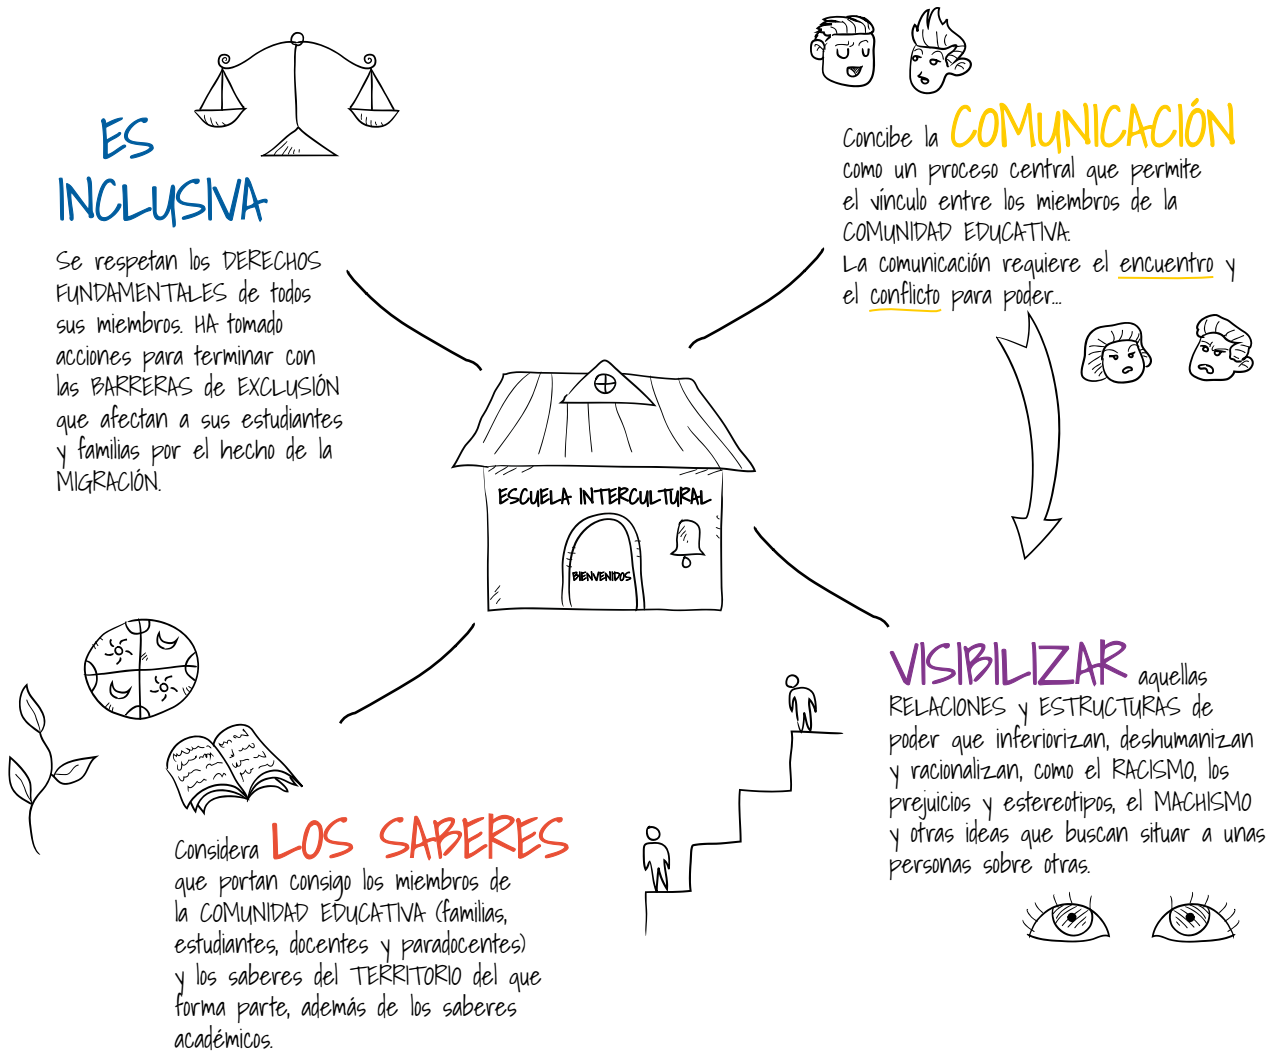 ES
INCLUSIVA
Se respetan los DERECHOS
FUNDAMENTALES de todos
sus miembros. HA tomado
acciones para terminar con
las BARRERAS de EXCLUSIÓN
que afectan a sus estudiantes
y familias por el hecho de la
MIGRACIÓN.
Concibe la COMUNICACIÓN
como un proceso central que permite
el vínculo entre los miembros de la
COMUNIDAD EDUCATIVA.
La comunicación requiere el encuentro y
el conflicto para poder...
ESCUELA INTERCULTURAL
BIENVENIDOS
VISIBILIZAR aquellas
RELACIONES y ESTRUCTURAS de
poder que inferiorizan, deshumanizan
y racionalizan, como el RACISMO, los
prejuicios y estereotipos, el MACHISMO
y otras ideas que buscan situar a unas
personas sobre otras.
Considera LOS SABERES
que portan consigo los miembros de
la COMUNIDAD EDUCATIVA (familias,
estudiantes, docentes y paradocentes)
y los saberes del TERRITORIO del que
forma parte, además de los saberes
académicos.